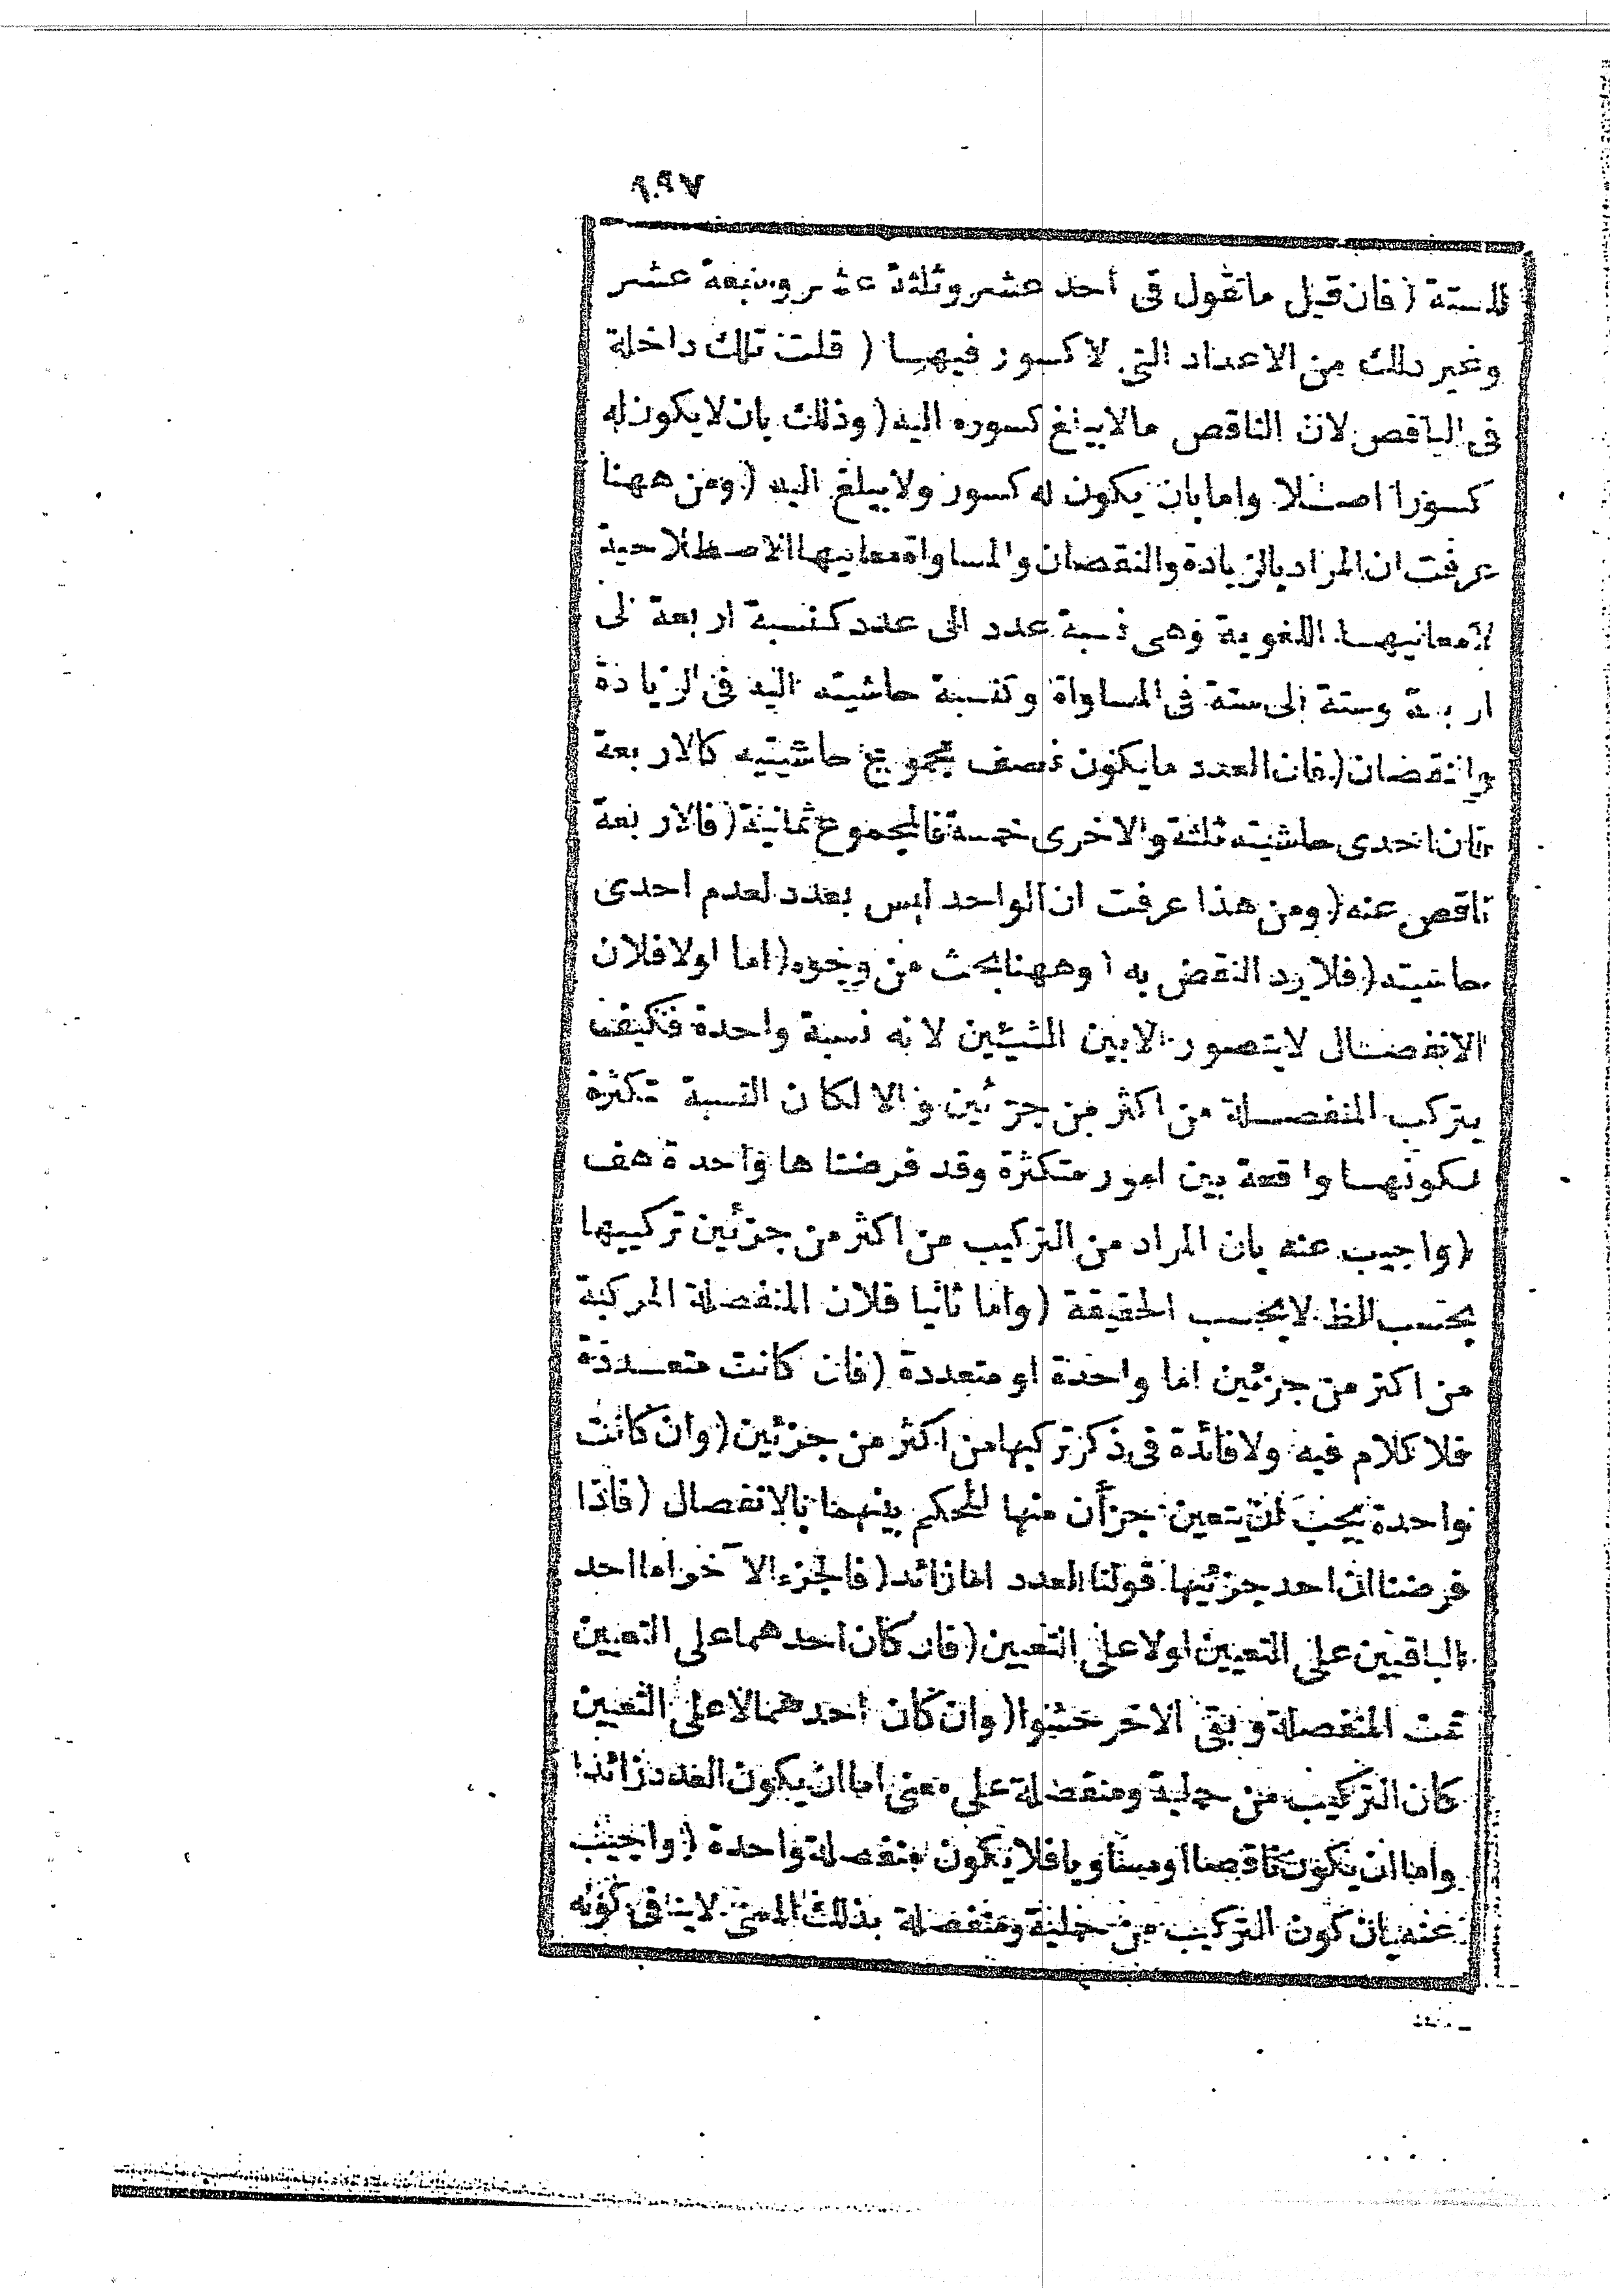 للستة ( فان قيل ما تقول فى احد عشر وثلثة عشر وسبعة عشر
وغير ذلك من الاعداد التى لا كسور فيها ( قلت تلك داخلة
فى الناقص لان الناقص مالا يبلغ كسوره اليه ( وذلك بان لا يكون له
كسورا اصلا واما بان يكون له كسور ولا يبلغ اليه ( ومن ههنا
عرفت ان المراد بالزيادة والنقصان والمساواة معانيها الاصطلاحية
لا معانيها اللغوية وهى نسبة عدد الى عدد كنسبة اربعة الى
اربعة وستة الى ستة فى المساواة وكنسبة حاشيته اليه فى الزيادة
والنقصان ( فان العدد ما يكون نصف مجموع حاشيتيه كالاربعة
فان احدى حاشيته ثلثة والاخرى خمسة فالمجموع ثمانية ( فالاربعة
ناقص عنه ( ومن هذا عرفت ان الواحد ليس بعدد لعدم احدى
حاشيته ( فلا يرد النقض به ( وههنا بحث من وجوه ( اما اولا فلان
الانفصال لا يتصور الا بين الشيئين لانه نسبة واحدة فكيف
يتركب المنفصلة من اكثر من جزئين والا لكان النسبة تكثرة
لكونها واقعة بين امور متكثرة وقد فرضناها واحدة هف
( واجيب عنه بان المراد من التركيب من اكثر من جزئين تركيبها
بحسب الظ لا بحسب الحقيقة ( واما ثانيا فلان المنفصلة المركبة
من اكثر من جزئين اما واحدة او متعددة ( فان كانت متعددة
فلا كلام فيه ولا فائدة فى ذكر تركبها من اكثر من جزئين ( وان كانت
واحدة يجب ان يتعين جزأن منها للحكم بينهما بالانفصال ( فاذا
فرضنا ان احد جزئيها قولنا العدد اما زائد ( فالجزء الآخر اما احد
الباقيين على التعيين اولا على التعيين ( فان كان احدهما على التعيين
تمت المنفصلة وبقى الاخر حشوا ( وان كان احدهما لا على التعيين
كان التركيب من حملية ومنفصلة على معنى اما ان يكون العدد زائدا
واما ان يكون ناقصا او مساويا فلا يكون منفصلة واحدة ( واجيب
عنه بان كون التركيب من حملية ومنفصلة بذلك المعنى لا ينافى كونه